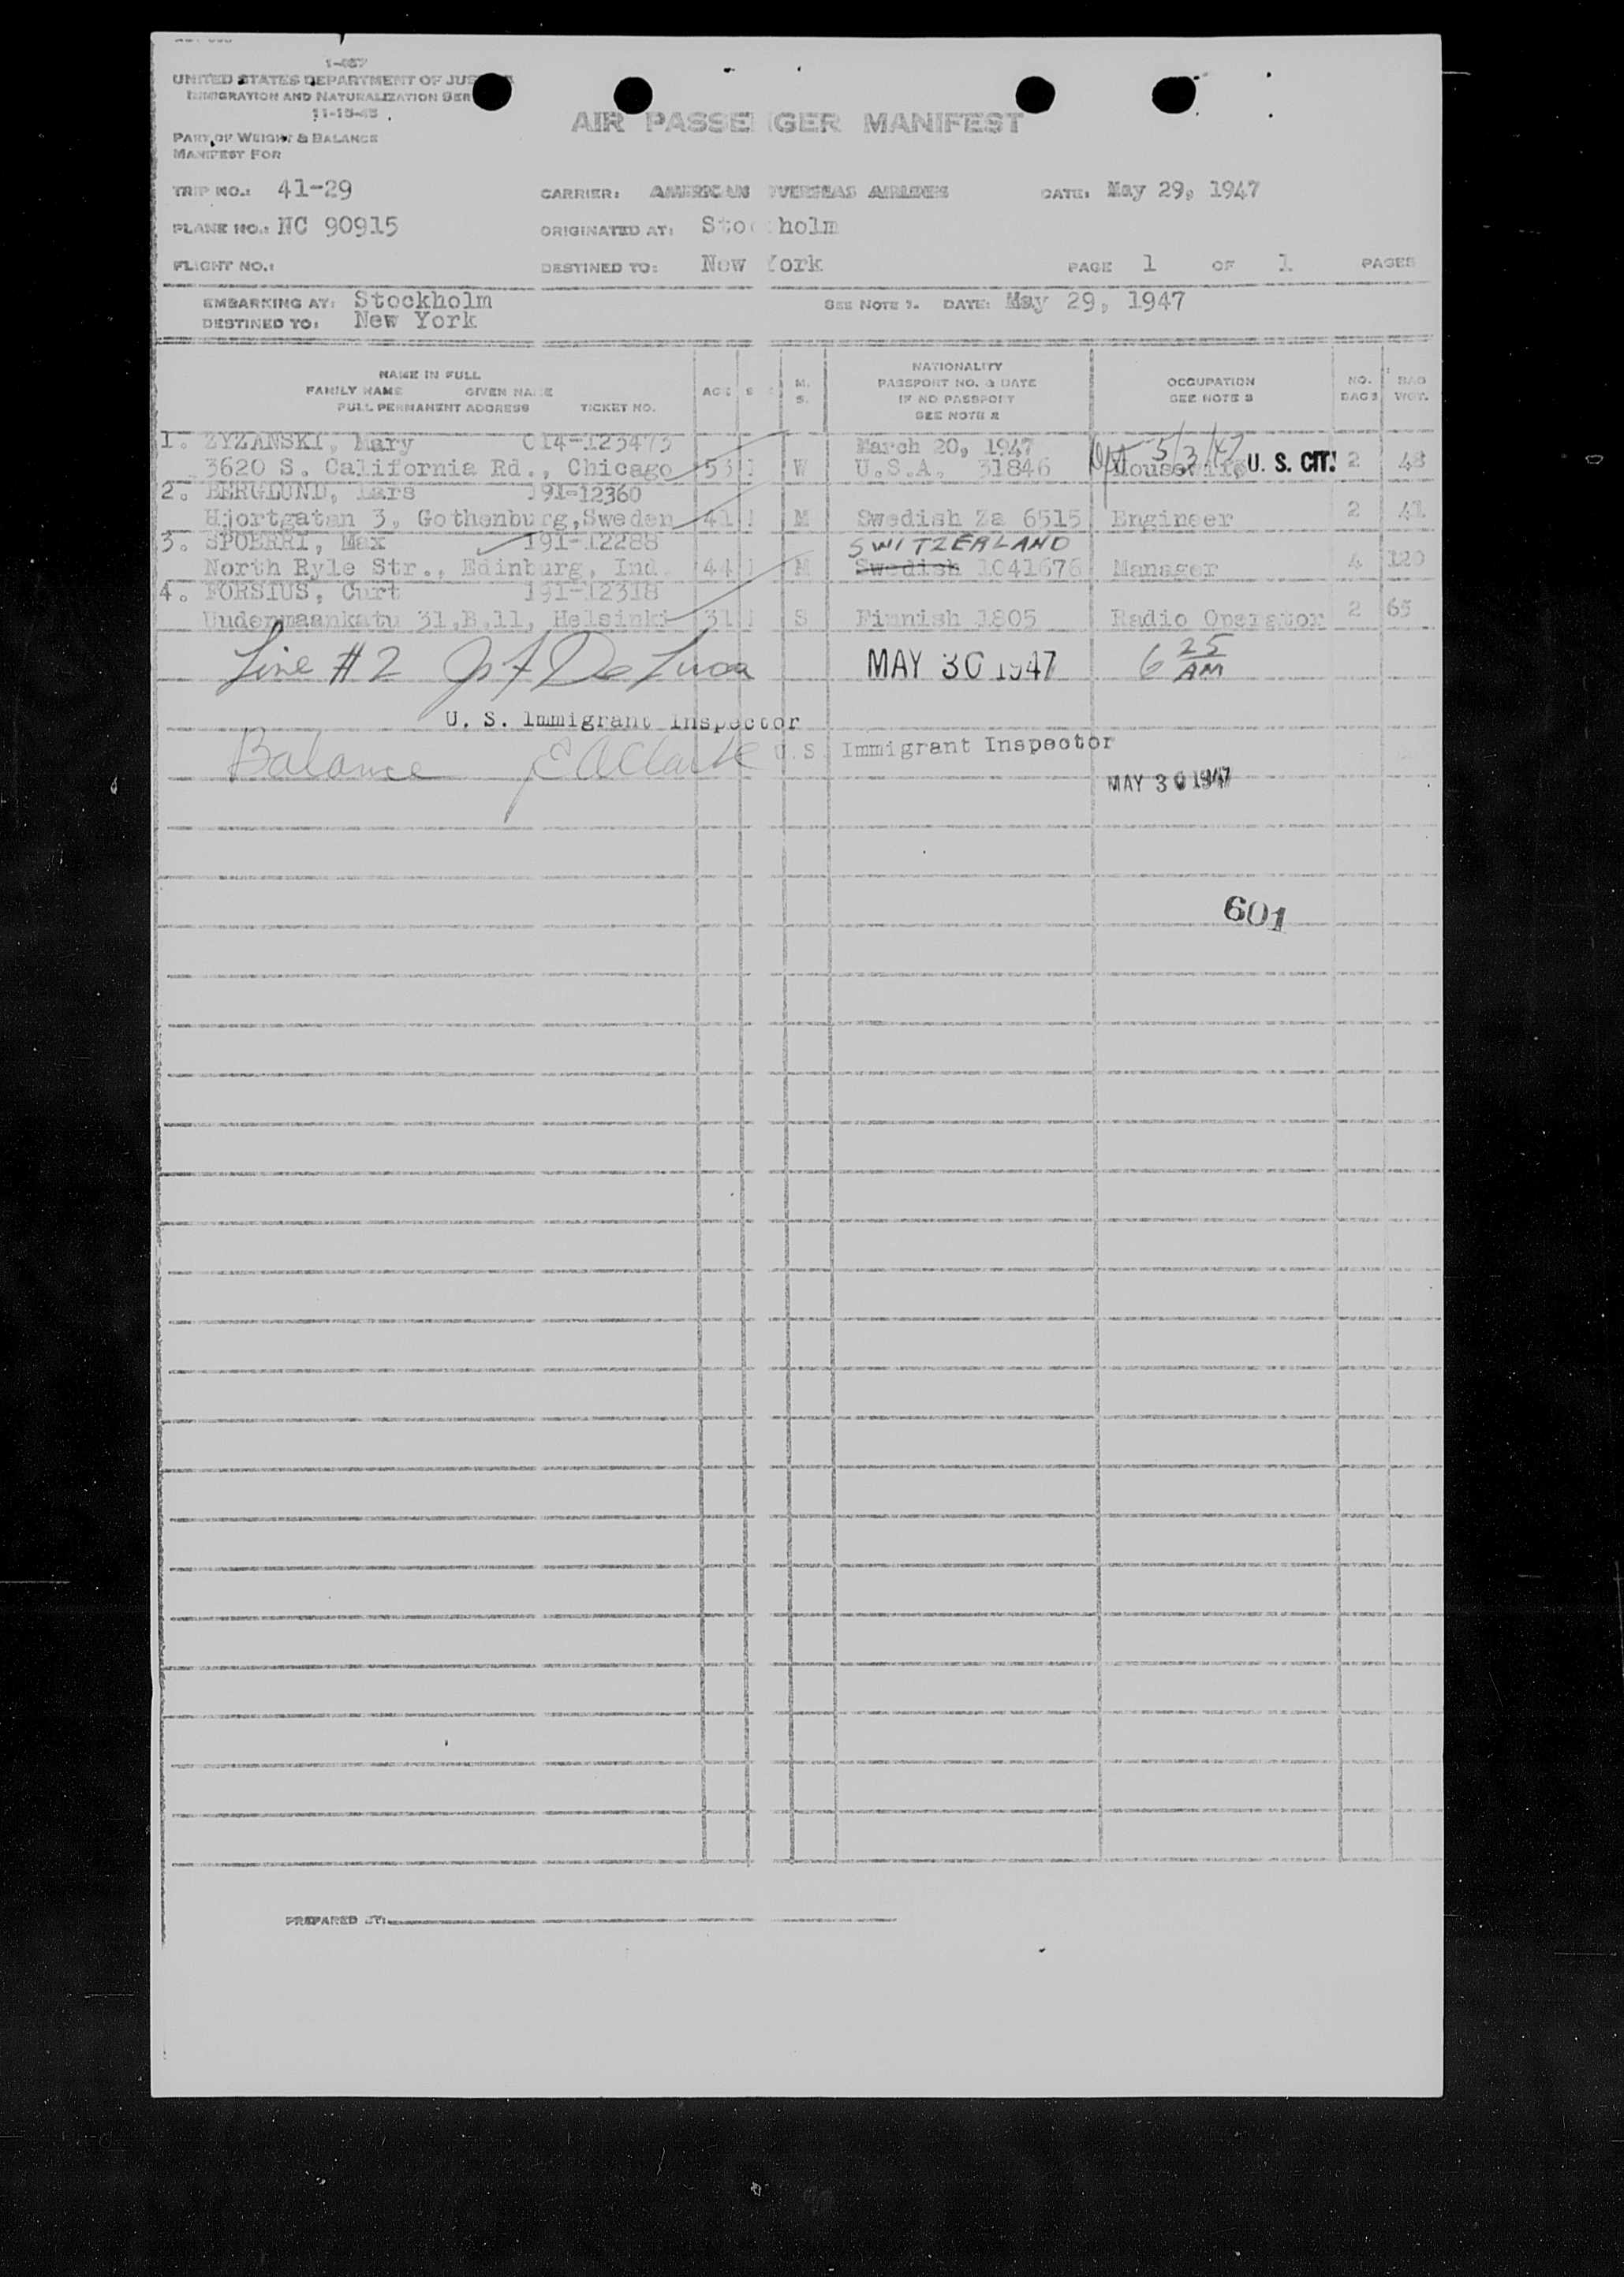 1-467
UNITED STATES DEPARTMENT OF JUS
IMMIGRATION AND NATURALIZATION SER
11-15-45
AIR PASSE GER MANIFEST
PART OF WEIGHT & BALANCE
MANIFEST FOR
TRIP NO.: 41-29 CARRIER: AMERICAN OVERSEAS AIRLINES DATE: May 29, 1947
PLANE NO.: NC 90915 ORIGINATED AT: Stockholm
FLIGHT NO.: DESTINED TO: New York PAGE 1 OF 1 PAGES
EMBARKING AT: Stockholm SEE NOTE 1. DATE: May 29, 1947
DESTINED TO: New York
NAME IN FULL
FAMILY NAME GIVEN NAME
FULL PERMANENT ADDRESS TICKET NO.
AGE S M. S.
NATIONALITY
PASSPORT NO. & DATE
IF NO PASSPORT
SEE NOTE 2
OCCUPATION
SEE NOTE 3
NO. BAGS BAG WGT.
1. ZYZANSKI, Mary 014-123473 March 20, 1947 5/3/47
3620 S. California Rd., Chicago 53 W U.S.A. 31846 Housewife U. S. CIT. 2 48
2. BERGLUND, Lars 191-12360
Hjortgatan 3, Gothenburg, Sweden 41 M Swedish Za 6515 Engineer 2 41
3. SPOERRI, Max 191-12288 SWITZERLAND
North Ryle Str., Edinburg, Ind. 44 M Swedish 1041676 Manager 4 120
4. FORSIUS, Curt 191-12318
Uudenmaankatu 31.B.11, Helsinki 31 S Finnish 1805 Radio Operator 2 65
Line #2 De Luca MAY 30 1947 6 25 AM
U. S. Immigrant Inspector
Balance E A Clark U.S. Immigrant Inspector
MAY 30 1947
601
PREPARED BY: